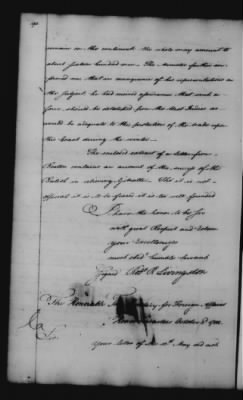 remains on the continent the whole may amount to
about sixteen hundred men. The Minister further in-
formed me that in consequence of his representations on
the subject, he had received assurances that such a
force should be detached from the West Indies as
would be adequate to the protection of the trade upon
this Coast during the winter.
The enclosed extract of a letter from
Boston contains an account of the success of the
British in relieving Gibraltar. Tho' it is not
official it is to be feared it is too well founded
I have the honor to be Sir
with great Respect and Esteem
your Excellency's
most obed. humble Servant
signed Robt. R. Livingston
The Honorable The Secretary for Foreign Affairs
Head Quarters October 1782
Sir,
Your letter of the 12th May did not